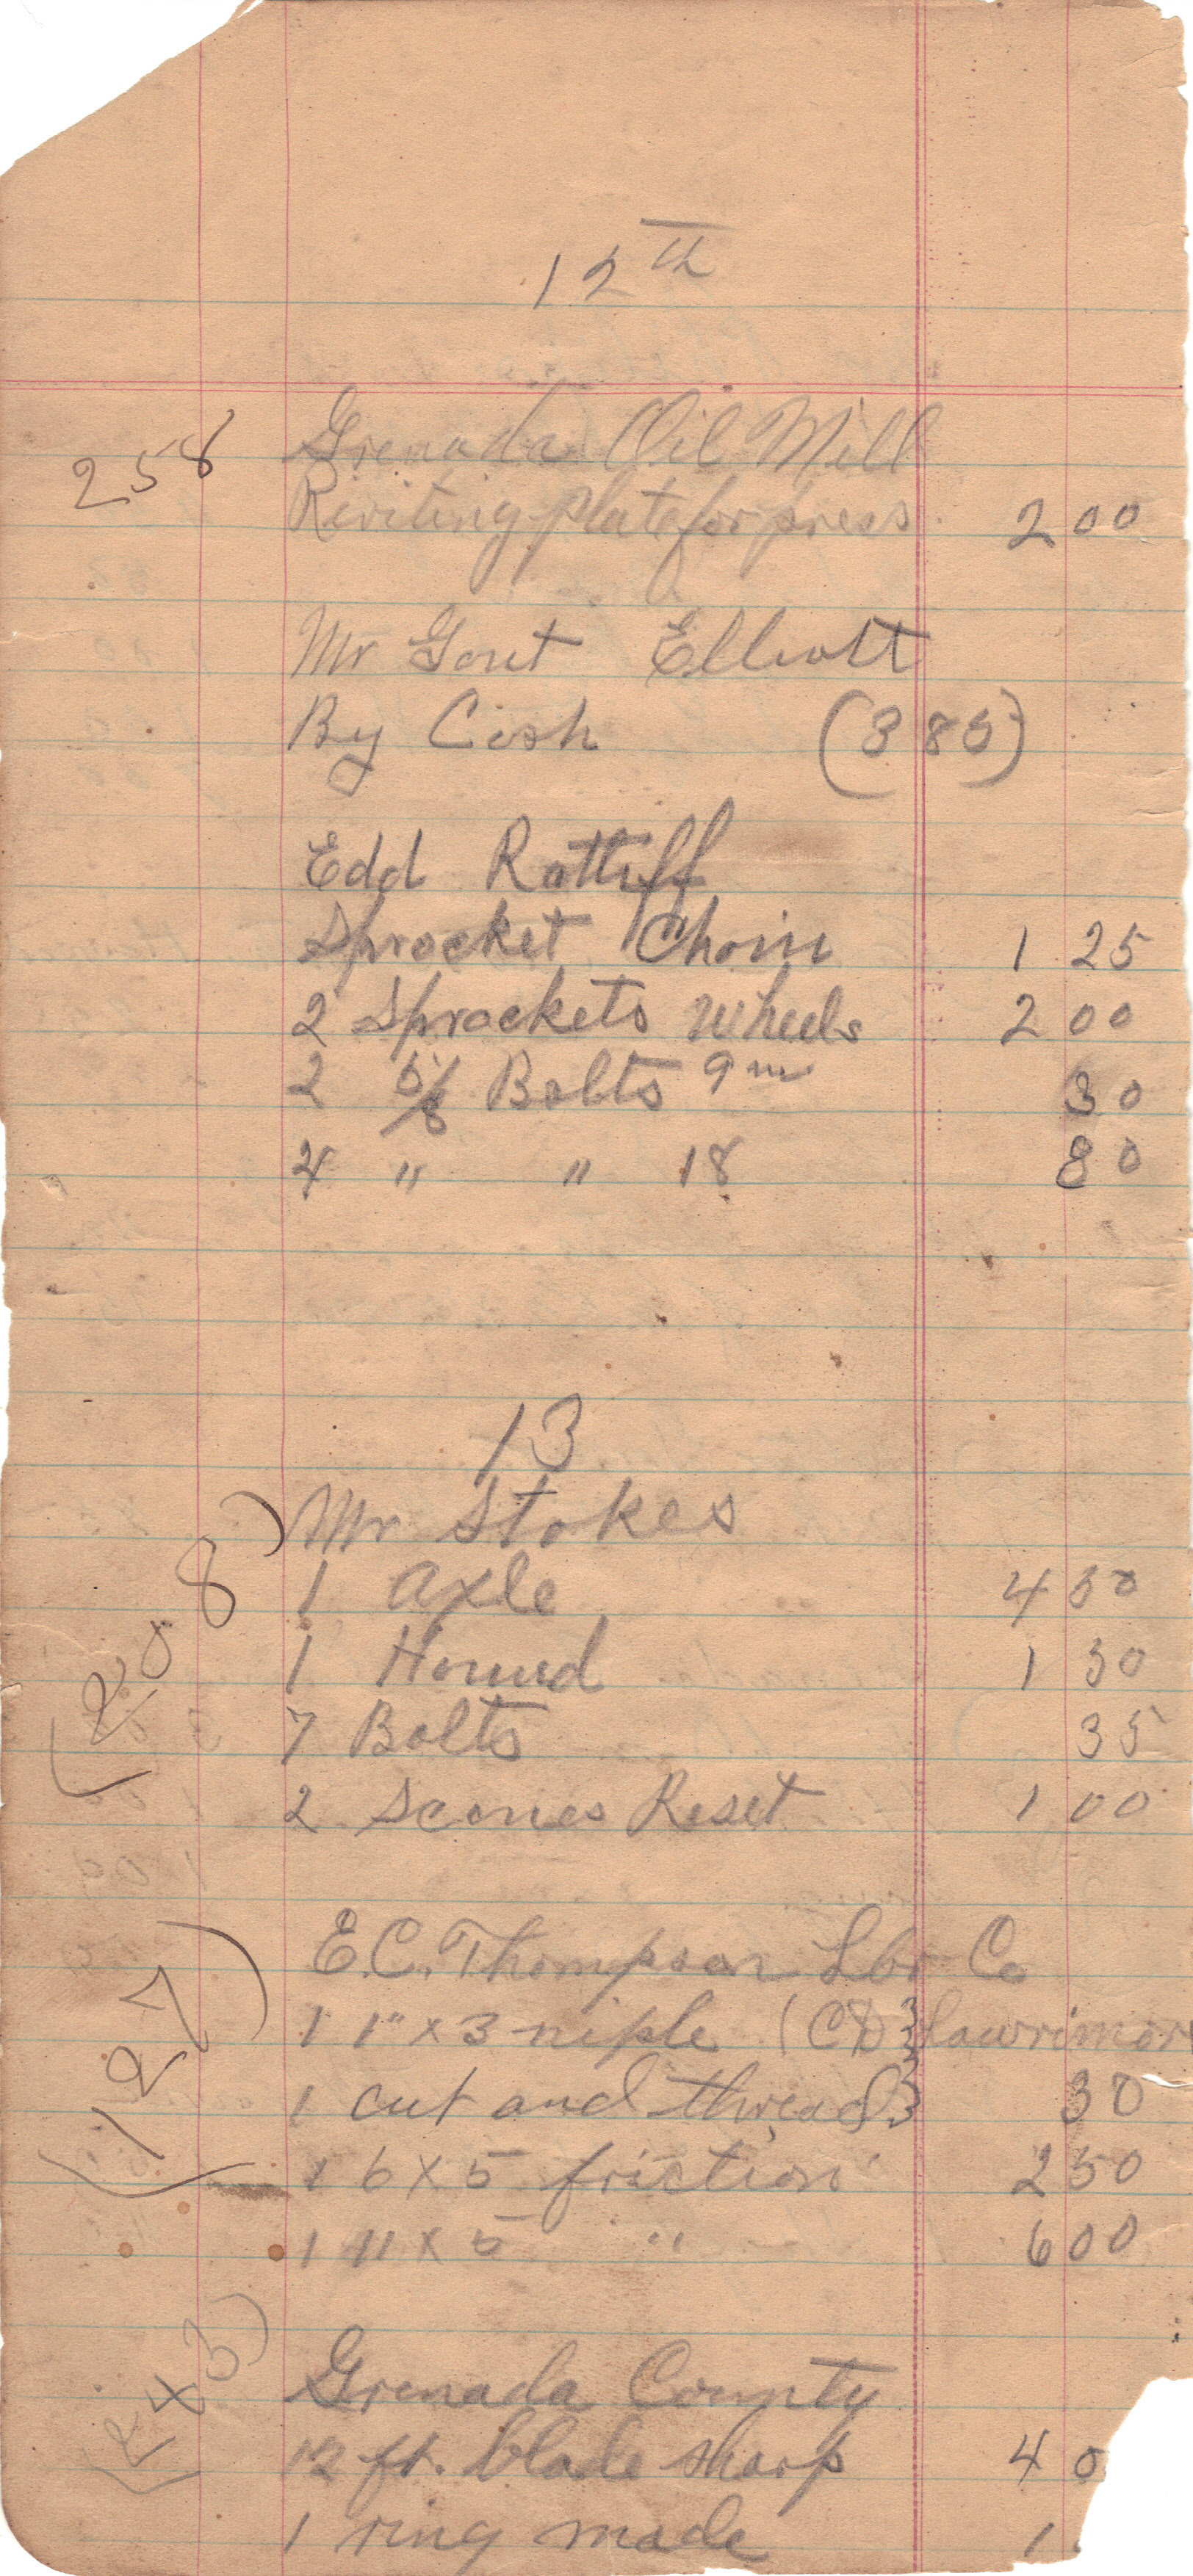 12th
258 Grenada Oil Mill
Riviting plate for press 2 00
Mr Gant Elliott
By Cash (3 85)
Edd Rattiff
Sprocket Chain 1 25
2 Sprockets Wheels 2 00
2 5/8 Bolts 9 in 30
4 " " 18 80
13
(208) Mr Stokes
1 Axle 4 50
1 Hound 1 50
7 Bolts 35
2 Reset 1 00
(127) E.C. Thompson Lbr Co
1 1" x 3 niple (CD Lawrimor
1 cut and thread 30
1 6 x 5 friction 2 50
1 11 x 5 " 6 00
(243) Grenada County
12 ft. blade sharp 4 0
1 ring made 1